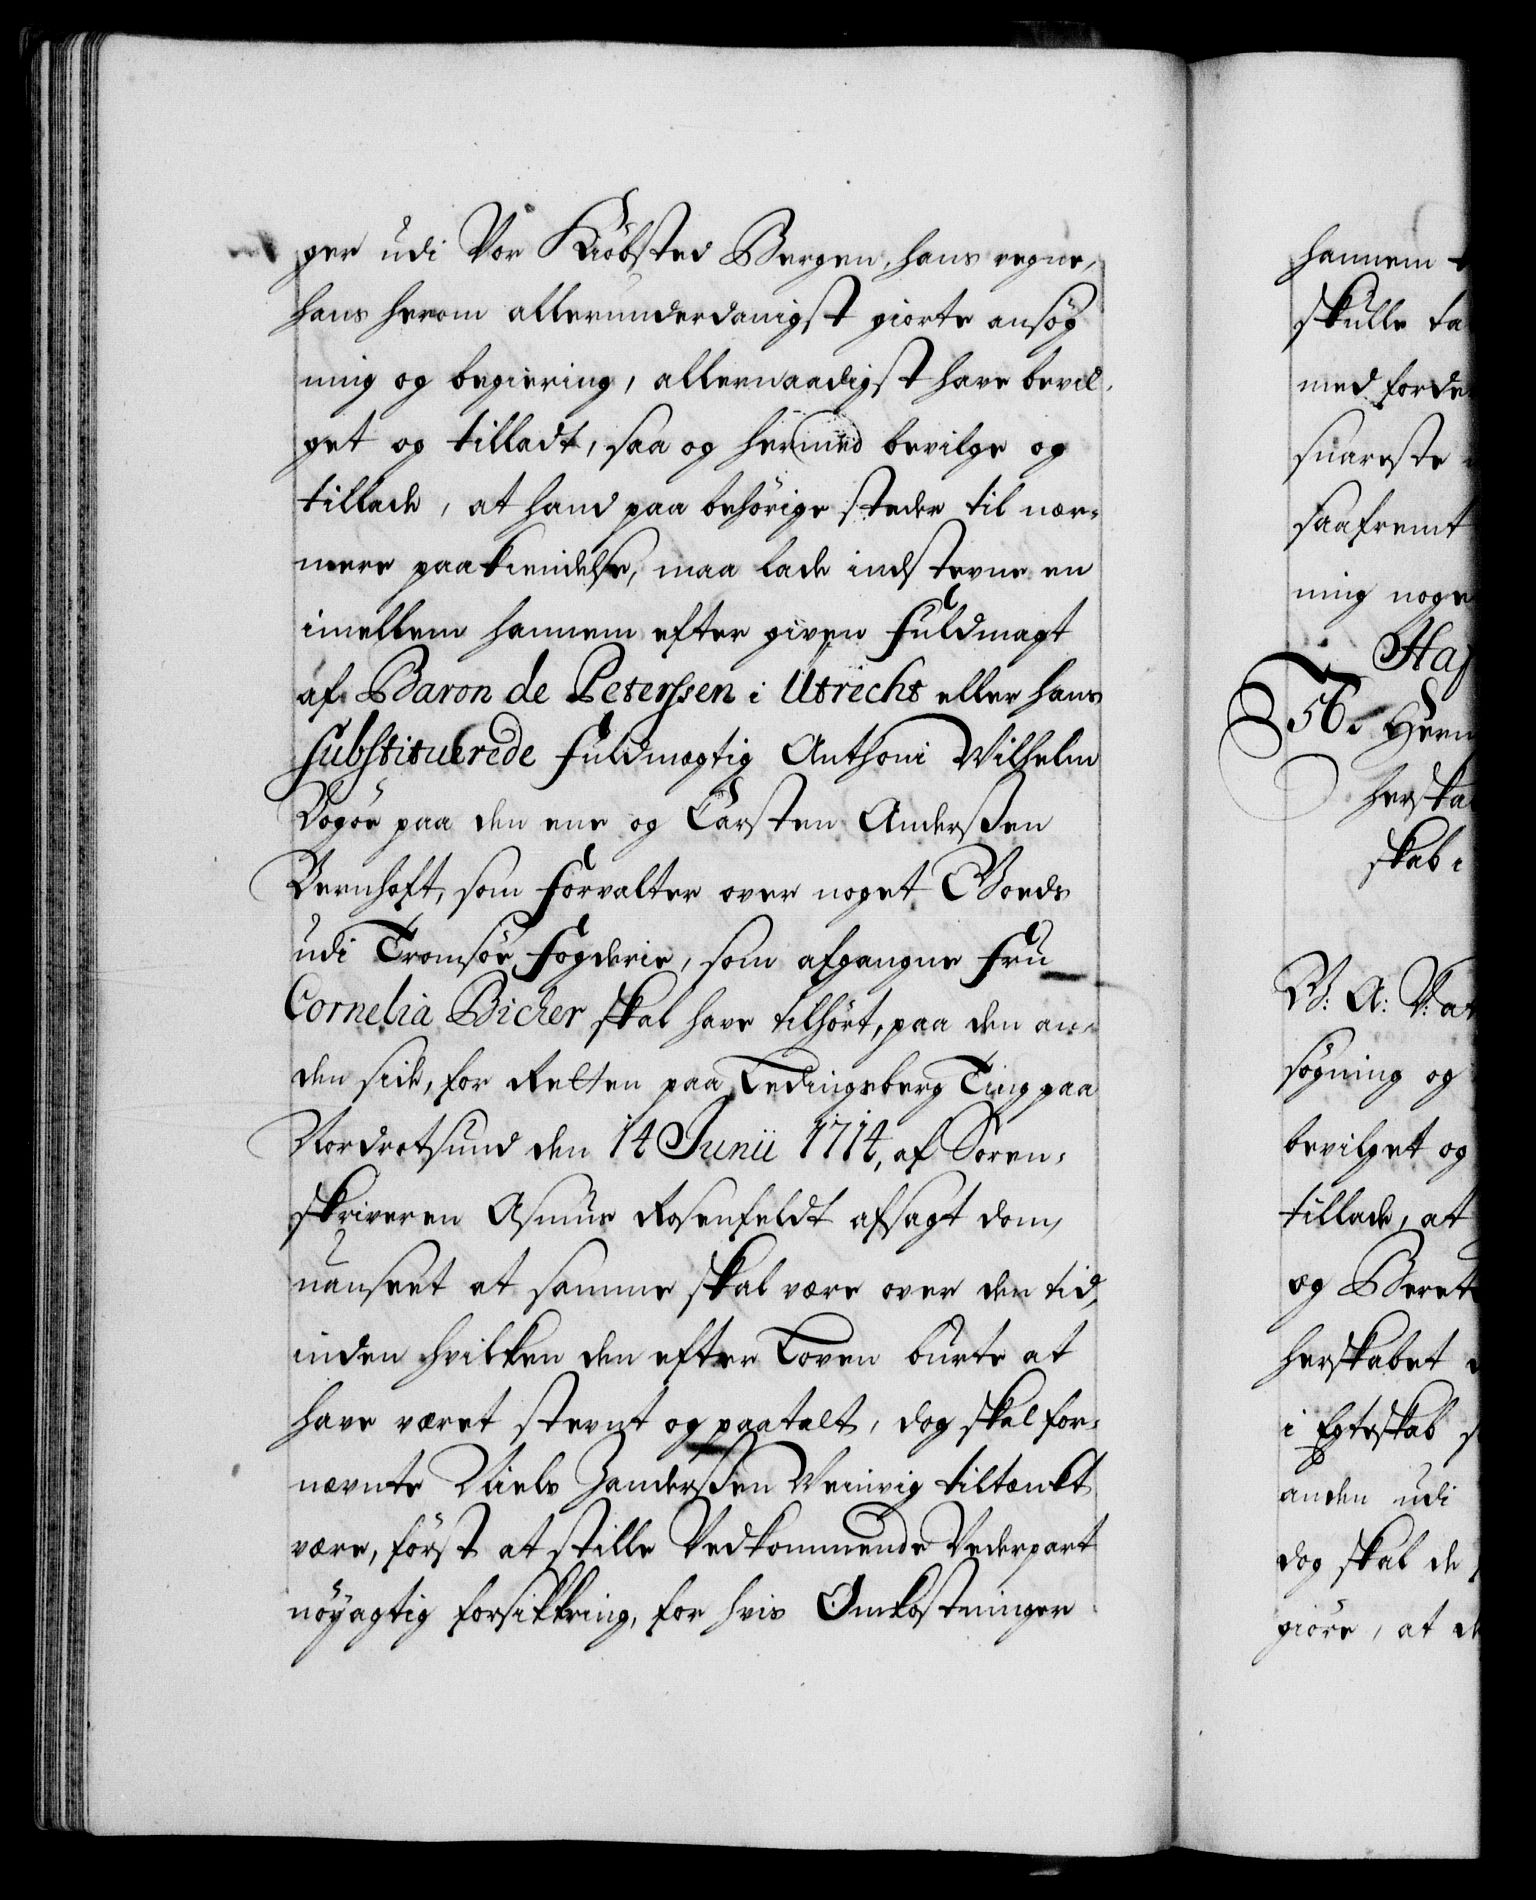 ger udi Vor Kiöbsted Bergen, hans egne,
hans herom allerunderdanigst giorte ansög
ning og begiering, allernaadigst have bevil,
get og tilladt, saa og hermed bevilge og
tillade, at hand paa behörige steder til nær,
mere paakiendelse, maa lade indstevne en
imellem hannem efter given Fuldmagt
af Baron de Peterssen i Utrecht eller hans
substituerede Fuldmegtig Anthoni Wilhelm
paa den ene og Carsten Anderssen
Bernhoft, som Forvalter over noget Goeds
udi Tromsöe Fogderie, som afgangne Fru
Cornelia Bicker skal have tilhört, paa den an,
den side, for Retten paa Ledingsberg Ting paa
Nordrotsund den 14 Junii 1714, af Soren,
skriveren Asmus Rosenfeldt afsagt dom,
uanseet at samme skal være over den tid,
inden hvilken den efter Loven burte at
have været stevnt og paatalt, dog skal for,
nævnte Niels Zanderssen Weinvig tiltænkt
være, först at stille Vedkommende Vederpart
nöyagtig forsikkring, for hvis Omkostninger
hannem
skulle ta
med forde
suareste
saafremt
ning noge
Haf
56.
herska
skab i
söegning og
bevilget og
tillade, at
og Beret
herskabet
i Egteskab
anden udi
dog skal de
giöre, at de